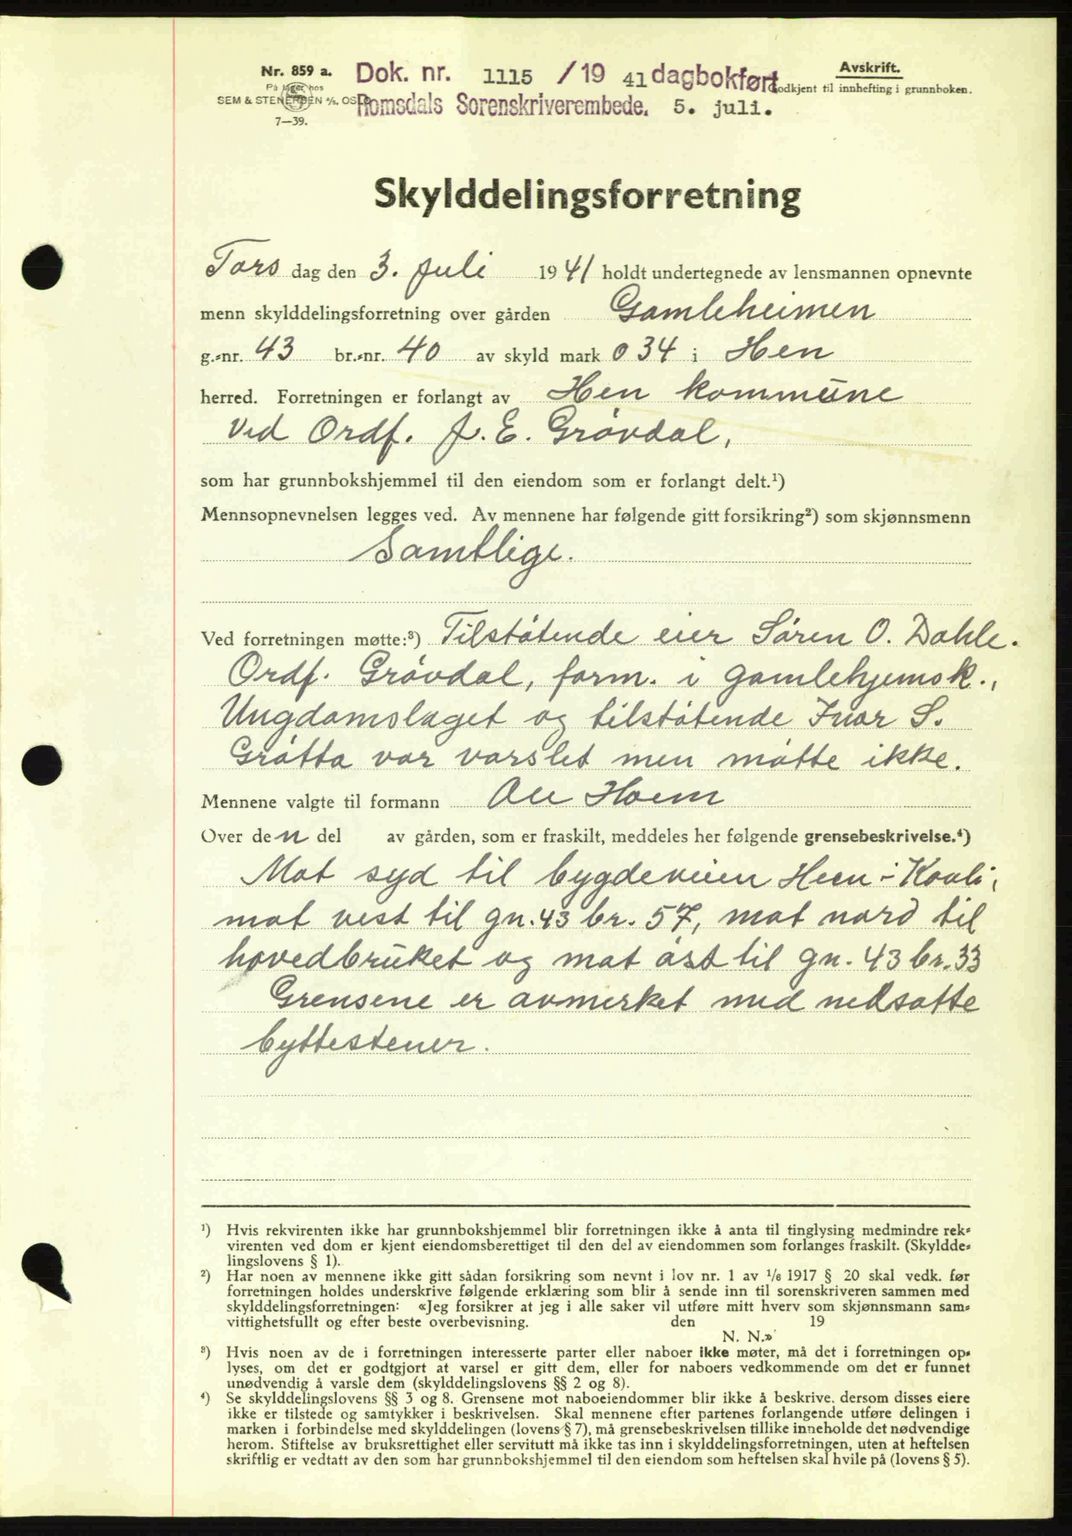 Nr. 859 a.
På lager hos
SEM & STENERSEN A/S, OSLO
7—39.
Dok. nr. 1115 /19 41 dagbokført
Romsdals Sorenskriverembede. 5. juli.
Avskrift.
Godkjent til innhefting i grunnboken.
Skylddelingsforretning
Tors dag den 3. Juli 1941 holdt undertegnede av lensmannen opnevnte
menn skylddelingsforretning over gården Gamleheimen
g.-nr. 43 br.-nr. 40 av skyld mark 0 34 i Hen
herred. Forretningen er forlangt av Hen kommune
ved Ordf. J. E. Grøvdal,
som har grunnbokshjemmel til den eiendom som er forlangt delt.¹)
Mennsopnevnelsen legges ved. Av mennene har følgende gitt forsikring²) som skjønnsmenn
Samtlige.
Ved forretningen møtte:³) Tilstøtende eier Søren O. Dahle.
Ordf. Grøvdal, form. i gamlehjemsk.,
Ungdomslaget og tilstøtende Ivar S.
Grøtta var varslet men møtte ikke.
Mennene valgte til formann Ole Hoem
Over den del av gården, som er fraskilt, meddeles her følgende grensebeskrivelse.⁴)
Mot syd til bygdeveien Heen - Kavli,
mot vest til gn. 43 br. 57, mot nord til
hovedbruket og mot øst til gn. 43 br. 33
Grensene er avmerket med nedsatte
byttestener.
¹) Hvis rekvirenten ikke har grunnbokshjemmel blir forretningen ikke å anta til tinglysing medmindre rek-
virenten ved dom er kjent eiendomsberettiget til den del av eiendommen som forlanges fraskilt. (Skyldde-
lingslovens § 1).
²) Har noen av mennene ikke gitt sådan forsikring som nevnt i lov nr. 1 av ¹/₆ 1917 § 20 skal vedk. før
forretningen holdes underskrive følgende erklæring som blir å sende inn til sorenskriveren sammen med
skylddelingsforretningen: «Jeg forsikrer at jeg i alle saker vil utføre mitt hverv som skjønnsmann sam-
vittighetsfullt og efter beste overbevisning. den 19
N. N.»
³) Hvis noen av de i forretningen interesserte parter eller naboer ikke møter, må det i forretningen op-
lyses, om det er godtgjort at varsel er gitt dem, eller for naboers vedkommende om det er funnet
unødvendig å varsle dem (skylddelingslovens §§ 2 og 8).
⁴) Se skylddelingslovens §§ 3 og 8. Grensene mot naboeiendommer blir ikke å beskrive, dersom disses eiere
ikke er tilstede og samtykker i beskrivelsen. Skal mennene efter partenes forlangende utføre delingen i
marken i forbindelse med skylddelingen (lovens § 7), må grensebeskrivelsen tillike inneholde det nødvendige
herom. Stiftelse av bruksrettighet eller servitutt må ikke tas inn i skylddelingsforretningen, uten at heftelsen
skriftlig er vedtatt av den som har grunnbokshjemmel til den eiendom som heftelsen skal hvile på (lovens § 5).